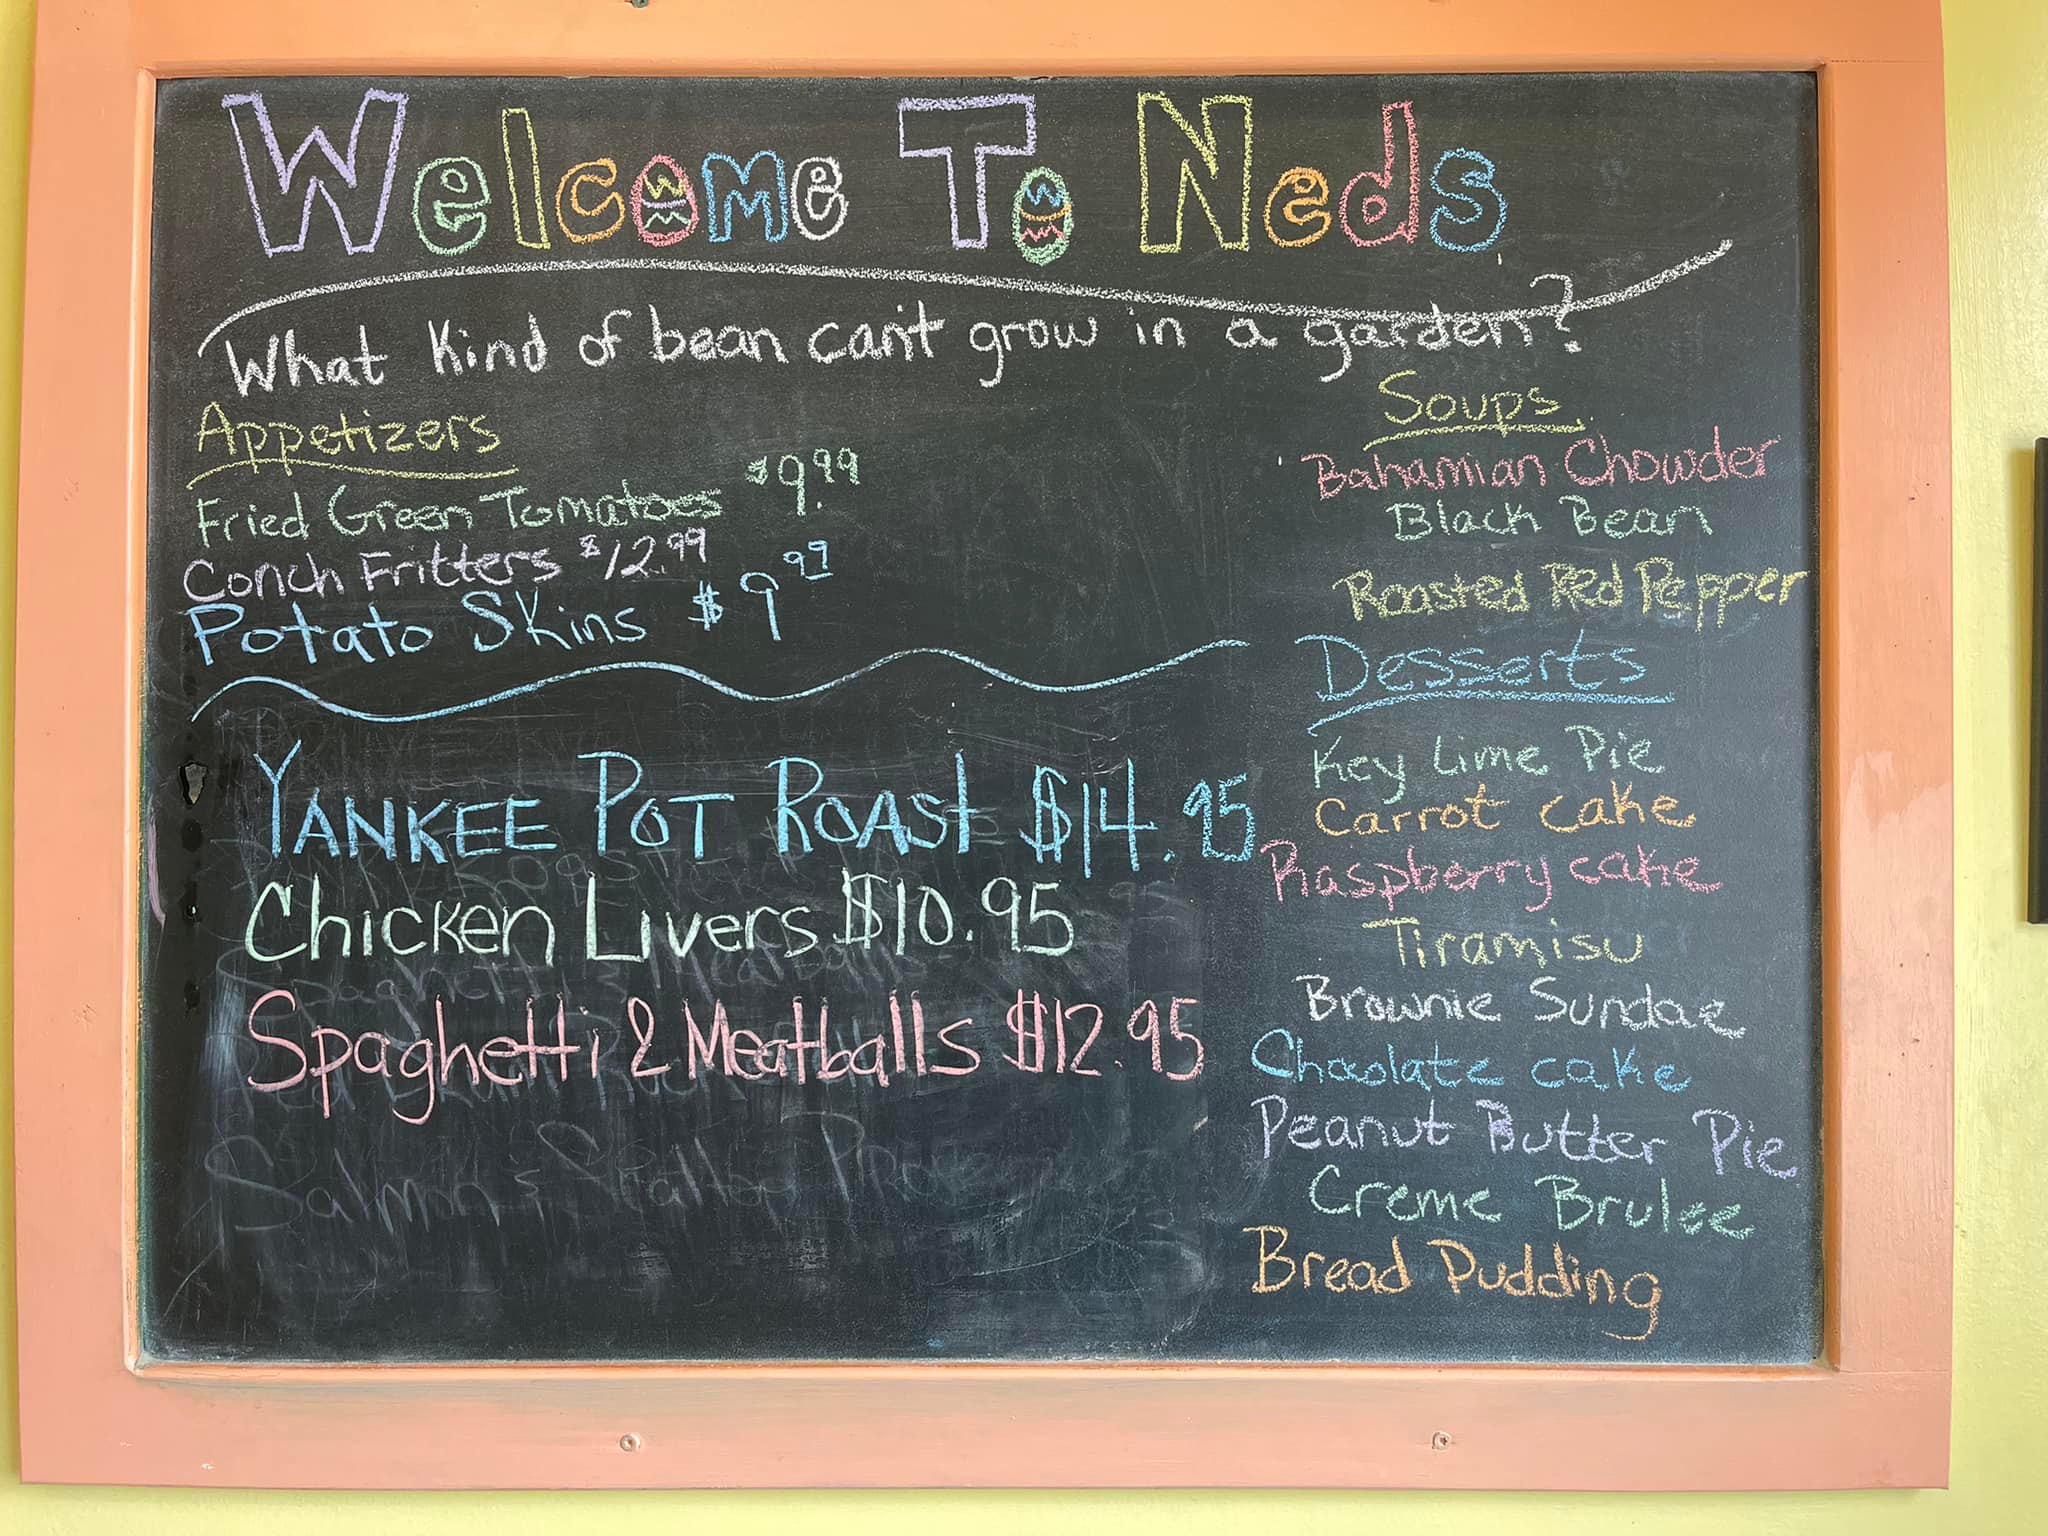 Welcome To Neds
What Kind of bean can't grow in a garden?
Appetizers
Fried Green Tomatoes $9.99
Conch Fritters $12.99
Potato Skins $9.99
YANKEE POT ROASt $14.95
Chicken Livers $10.95
Spaghetti & Meatballs $12.95
Salmon & Scallop
Soups
Bahamian Chowder
Black Bean
Roasted Red Pepper
Desserts
Key Lime Pie
Carrot cake
Raspberry cake
Tiramisu
Brownie Sundae
Chocolate cake
Peanut Butter Pie
Creme Brulee
Bread Pudding